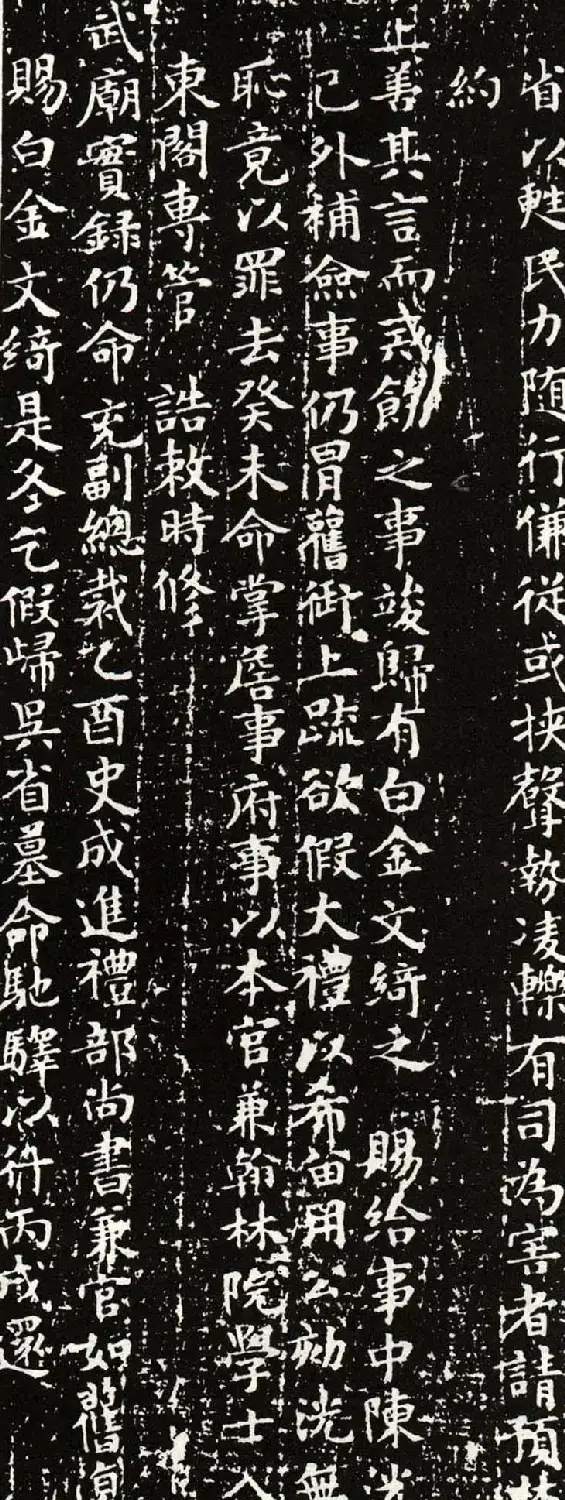 省以甦民力随行傔従或挟聲勢凌轢有司為害者請預禁
約
上善其言而戒飭之事竣歸有白金文綺之 賜給事中陳光
已外補僉事仍冒舊銜上疏欲假大禮以希留用公劾洸無
恥竟以罪去癸未命掌詹事府事以本官兼翰林院學士入
東閣専管 誥敕時修
武廟實録仍命充副總裁乙酉史成進禮部尚書兼官如舊
賜白金文綺是冬乞假歸吳省墓命馳驛以行丙戌還